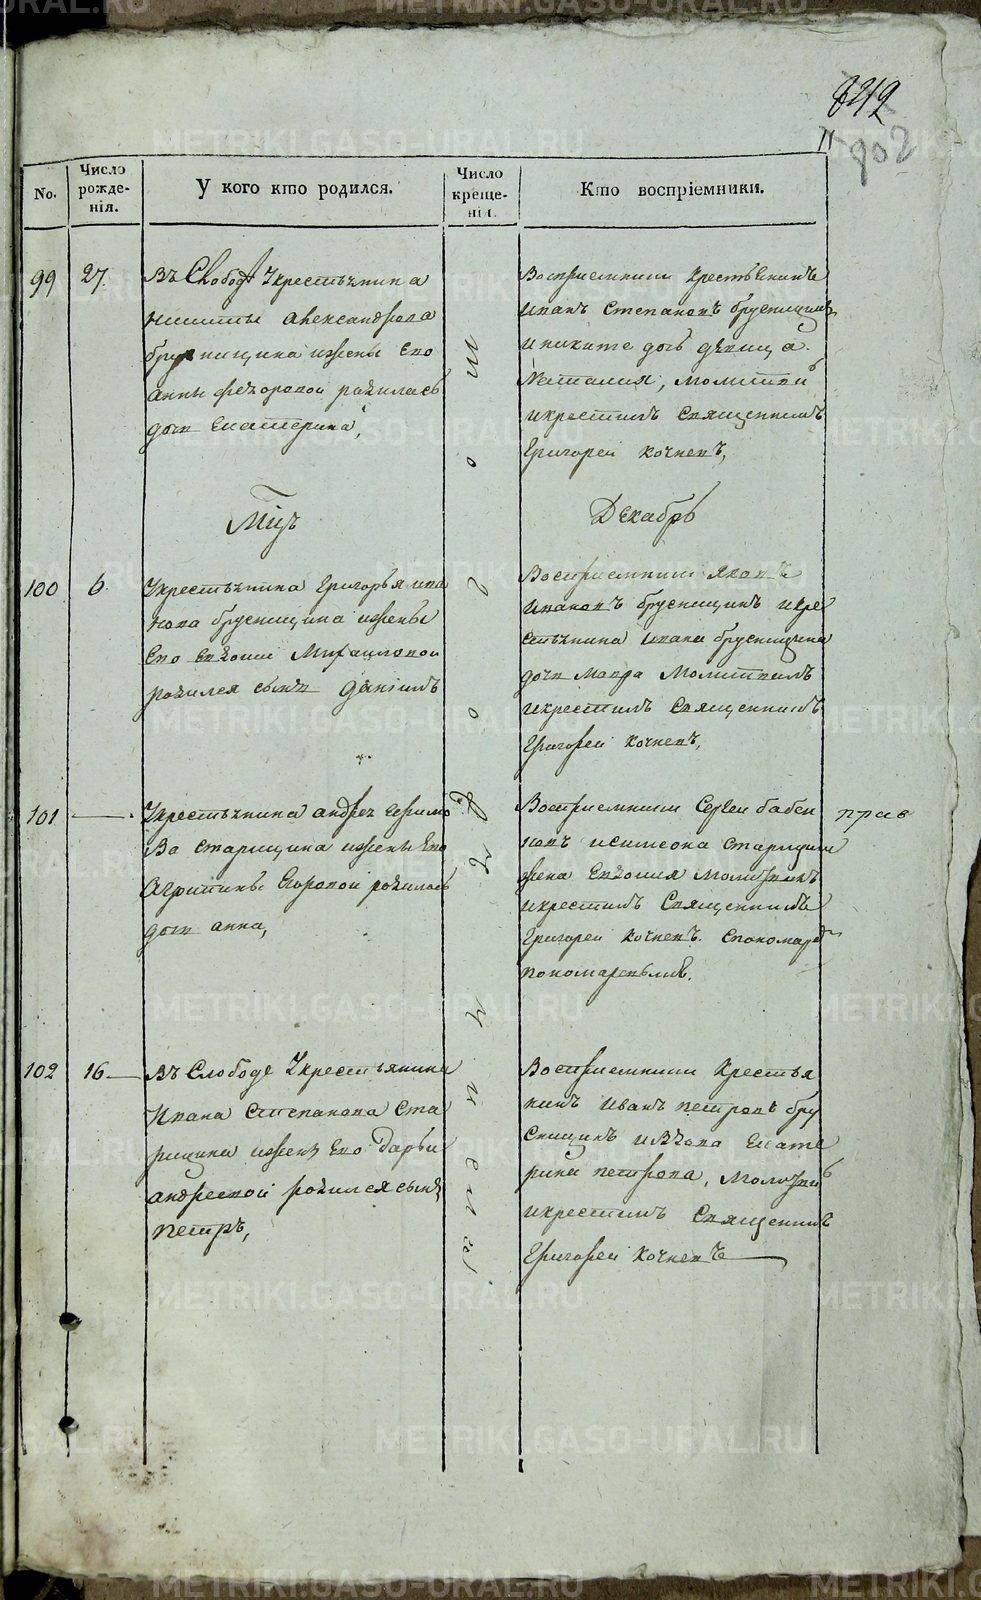 842
902
No.
Число рожде-нія.
У кого кто родился.
Число креще-нія.
Кто воспріемники.
99
27.
Въ Слободѣ Укрестьянина
Никиты Александрова
брусницина ижены Его
Анны Федоровой родилась
дочь Екатерина,
Восприемники крестьянинъ
Иванъ Степановъ брусницинъ
Иниките дочь девица
Наталия, молитвой
Икрестилъ Священникъ
Григорей Кочневъ,
Мцъ
Декабрь
100
6.
Укрестьянина Григорья ива
нова брусницина ижены
Его Евдокии Михаиловой
родился сынъ Даніилъ
Восприемники Яковъ
Ивановъ брусницинъ икре
стьянина Ивана брусницина
дочь Мавра Молитвилъ
икрестилъ Священникъ
Григорей Кочневъ,
101
Укрестьянина Андрея ефимо
ва Старицина ижены Его
Агрипины Егоровой родилась
дочь анна,
Восприемники Сергей бабки
новъ исимеона Старицина
жена Евдокия Молитвилъ
икрестилъ Священникъ
Григорей Кочневъ. Спономаремъ
пономаревымъ.
прав
102
16
Въ Слободе Укрестьянина
Ивана Степанова Ста
рицина ижены Его Дарьи
андреевой родился сынъ
Петръ,
Восприемники Крестья
нинъ Иванъ петровъ бру
сницинъ ивдова Екате
рина петрова, Молитвилъ
икрестилъ Священникъ
Григорей Кочневъ
того ж числа
METRIKI.GASO-URAL.RU